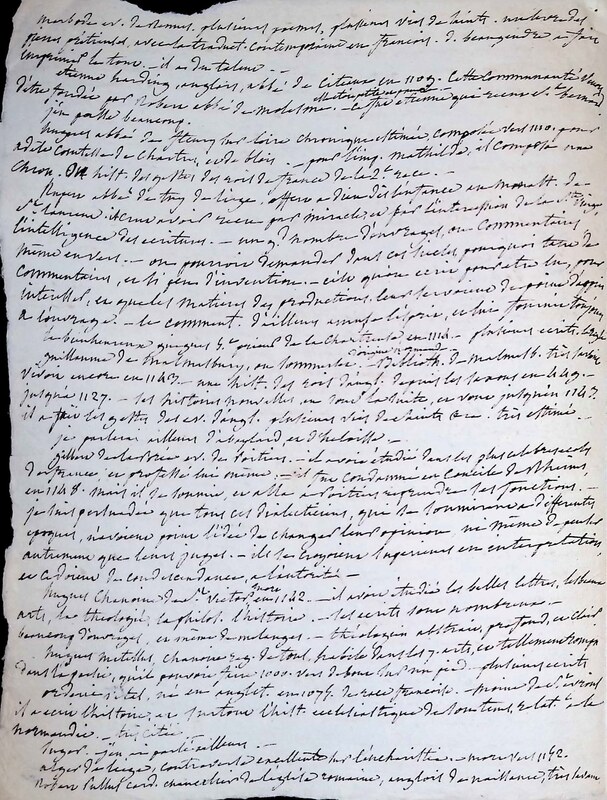 marbode ev. de Rennes. plusieurs poemes, plusieurs vies de saints. un livre des
pierres precieuses, avec la traduct. contemporaine en francois. d. beaugendre a fait
imprimer le tout. — il a du talent —
etienne harding, anglois, abbé de Citeaux en 1109. Cette Communauté
d'être fondée par Robert abbé de molesme. — ce fut etienne qui recut St. bernard
j'en passe beaucoup.
hugues abbé de fleury sur loire chronique estimée, composée vers 1110. pour
adele Comtesse de Chartres, et de blois. — pour l'imp. mathilde, il composa une
Chron. ou hist. des gestes des rois de france de la 2e race. —
Rupert abbé de tuy de liege, offert a dieu dès l'enfance au monast. de
St. laurent. il crut avoir recu par miracle et par l'intercession de la Ste Vierge
l'intelligence des ecritures. — un gd nombre d'ouvrages, ou Commentaires
même en vers. — on pourroit demander dans ces siecles pourquoi tant de
Commentaires, et si peu d'invention. — celui qui ecrit pour etre lu, pour
interesser, et que les matieres des productions
a l'ouvrage. — le comment. d'ailleurs amuse et fournit toujours
le bienheureux guigues 5e prieur de la Chartreuse en 1114. — plusieurs ecrits.
guillaume de malmesbury, ou sommerset. — biblioth. de malmesb. très savant
vivoit encore en 1143. — une hist. des rois d'angl. depuis les saxons en 449.
jusqu'a 1127. — les histoires nouvelles, en sont la suite, et vont jusqu'en 1143.
il a fait les gestes des ev. d'angl. plusieurs vies de saints &a. très estimé.
je parlerai ailleurs d'abeylard et d'heloise. —
gilbert de la porée ev. de Poitiers. — il avoit étudié dans les plus celebres ecoles
de france, et professé lui même. — il fut condamné au Concile de Rheims,
en 1148. mais il se soumit, et alla a Poitiers reprendre ses fonctions. —
je suis persuadée que tous ces dialecticiens, qui se soumirent a differentes
epoques, n'avoient point l'idée de changer leur opinion, ni même de penser
autrement que leurs juges. — ils se croyoient superieurs en interpretation
et cedoient de condescendance, a l'autorité —
hugues Chanoine de St. Victor mort en 1142. — il avoit étudié les belles lettres, les beaux
arts, la theologie, la philos. l'histoire. — ses ecrits sont nombreux —
beaucoup d'ouvrages, et même de melanges. — theologien abstrait, profond, et clair
hugues metellus, chanoine reg. de toul, habile dans les 7. arts, et tellement rompu
dans la poesie, qu'il pouvoit faire 1000. vers de bout sur un pied. — plusieurs ecrits
orderic vital, né en anglet. en 1075. de race francoise. — moine de St. evroul
il a ecrit l'histoire, et surtout l'hist. ecclesiastique de son tems, relat. a la
normandie. — très citée —
suger. j'en ai parlé ailleurs. —
alger de liege, controversiste excellent sur l'eucharistie. — mort vers 1142.
Robert Pullus card. chancelier de l'eglise romaine, anglois de naissance, très savant